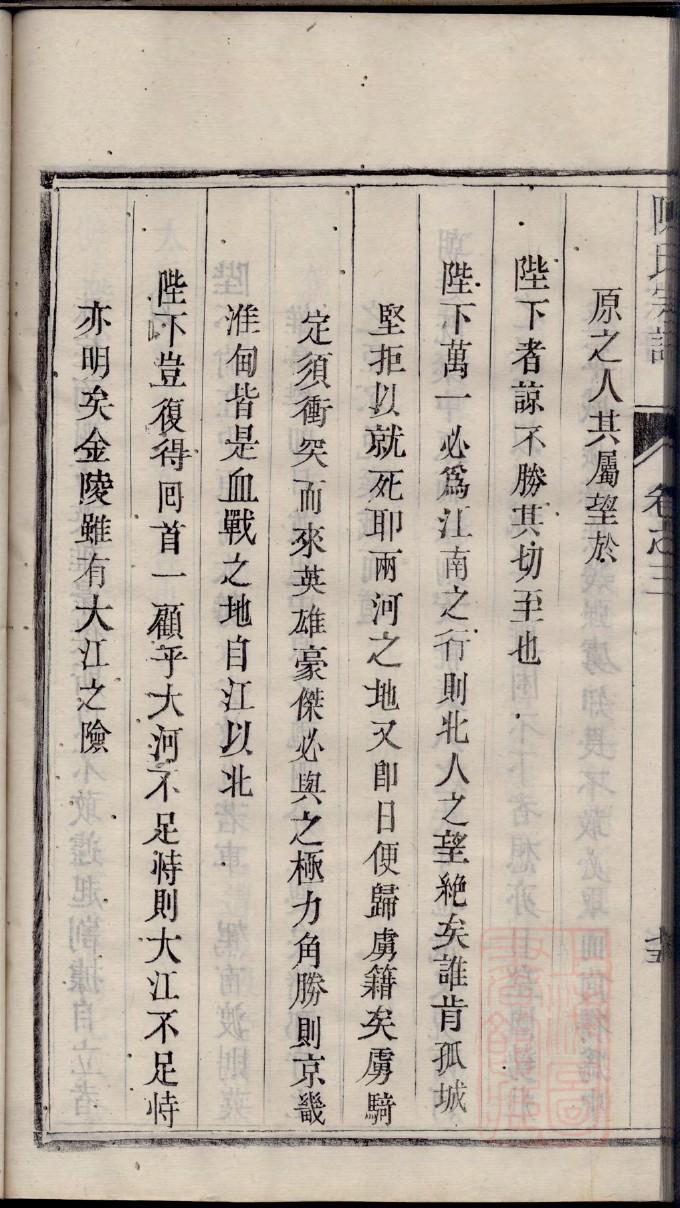 陳氏宗譜　卷之三
原之人其屬望於
陛下者諒不勝其切至也
陛下萬一必爲江南之行則北人之望絶矣誰肯孤城
堅拒以就死耶兩河之地又卽日便歸虜籍矣虜騎
定須衝突而來英雄豪傑必與之極力角勝則京畿
淮甸皆是血戰之地自江以北
陛下豈復得囘首一顧乎大河不足恃則大江不足恃
亦明矣金陵雖有大江之險